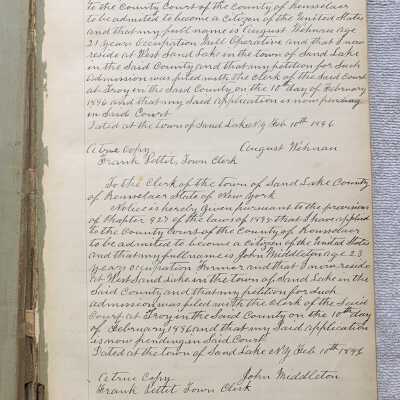 to the County Court of the County of Rensselaer
to be admitted to become a Citizen of the United States
and that my full name is August Wohnau age
21 years Occupation Mill Operative and that I now
reside at West Sand Lake in the town of Sand Lake
in the Said County and that my petition for Such
admission was filed with the Clerk of the Said Court
at Troy in the Said County on the 10th day of February
1896 and that my Said Application is now pending
in Said Court
Dated at the town of Sand Lake N.Y. Feb 10th 1896
A true Copy August Wohnau
Frank Pettet, Town Clerk
To the Clerk of the town of Sand Lake County
of Rensselaer State of New York
Notice is hereby given pursuant to the provision
of Chapter 927 of the laws of 1895 that I have applied
to the County Court of the County of Rensselaer
to be admitted to become a Citizen of the United States
and that my full name is John Middleton age 23
years occupation Farmer and that I now reside
at West Sand Lake in the town of Sand Lake in the
Said County and that my petition for such
admission was filed with the Clerk of the Said
Court at Troy in the Said County on the 10th day
of February 1896 and that my Said Application
is now pending in Said Court
Dated at the town of Sand Lake N.Y. Feb 10th 1896
A true Copy John Middleton
Frank Pettet Town Clerk